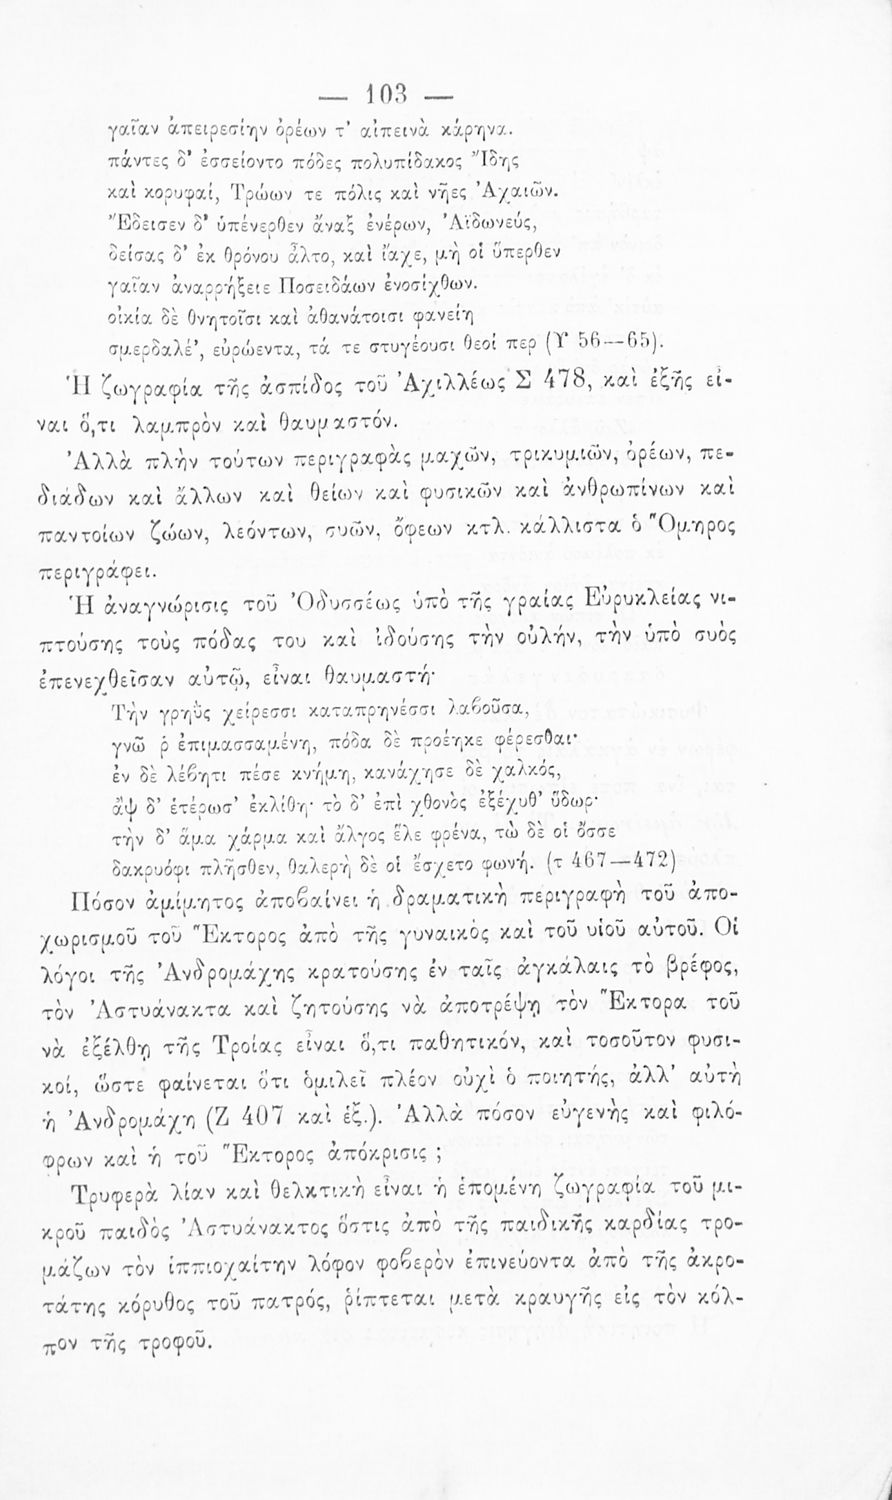 — 103 —
γαῖαν ἀπειρεσίην ὀρέων τ’ αἰπεινὰ κάρηνα.
πάντες δ’ ἐσσείοντο πόδες πολυπίδακος Ἴδης
καὶ κορυφαί, Τρώων τε πόλις καὶ νῆες Ἀχαιῶν.
Ἔδεισεν δ’ ὑπένερθεν ἄναξ ἐνέρων, Ἀϊδωνεύς,
δείσας δ’ ἐκ θρόνου ἆλτο, καὶ ἴαχε, μὴ οἱ ὕπερθεν
γαῖαν ἀναρρήξειε Ποσειδάων ἐνοσίχθων.
οἰκία δὲ θνητοῖσι καὶ ἀθανάτοισι φανείη
σμερδαλέ’, εὐρώεντα, τά τε στυγέουσι θεοί περ (Υ 56—65).
Ἡ ζωγραφία τῆς ἀσπίδος τοῦ Ἀχιλλέως Σ 478, καὶ ἑξῆς εἶ-
ναι ὅ,τι λαμπρὸν καὶ θαυμαστόν.
Ἀλλὰ πλὴν τούτων περιγραφὰς μαχῶν, τρικυμιῶν, ὀρέων, πε-
διάδων καὶ ἄλλων καὶ θείων καὶ φυσικῶν καὶ ἀνθρωπίνων καὶ
παντοίων ζώων, λεόντων, συῶν, ὄφεων κτλ. κάλλιστα ὁ Ὅμηρος
περιγράφει.
Ἡ ἀναγνώρισις τοῦ Ὀδυσσέως ὑπὸ τῆς γραίας Εὐρυκλείας νι-
πτούσης τοὺς πόδας του καὶ ἰδούσης τὴν οὐλήν, τὴν ὑπὸ συὸς
ἐπενεχθεῖσαν αὐτῷ, εἶναι θαυμαστή·
Τὴν γρηῢς χείρεσσι καταπρηνέσσι λαβοῦσα,
γνῶ ῥ ἐπιμασσαμένη, πόδα δὲ προέηκε φέρεσθαι·
ἐν δὲ λέβητι πέσε κνήμη, κανάχησε δὲ χαλκός,
ἂψ δ’ ἑτέρωσ’ ἐκλίθη· τὸ δ’ ἐπὶ χθονὸς ἐξέχυθ’ ὕδωρ·
τὴν δ’ ἅμα χάρμα καὶ ἄλγος ἕλε φρένα, τὼ δὲ οἱ ὄσσε
δακρυόφι πλῆσθεν, θαλερὴ δὲ οἱ ἔσχετο φωνή. (τ 467—472)
Πόσον ἀμίμητος ἀποβαίνει ἡ δραματικὴ περιγραφὴ τοῦ ἀπο-
χωρισμοῦ τοῦ Ἕκτορος ἀπὸ τῆς γυναικὸς καὶ τοῦ υἱοῦ αὐτοῦ. Οἱ
λόγοι τῆς Ἀνδρομάχης κρατούσης ἐν ταῖς ἀγκάλαις τὸ βρέφος,
τὸν Ἀστυάνακτα καὶ ζητούσης νὰ ἀποτρέψῃ τὸν Ἕκτορα τοῦ
νὰ ἐξέλθῃ τῆς Τροίας εἶναι ὅ,τι παθητικόν, καὶ τοσοῦτον φυσι-
κοί, ὥστε φαίνεται ὅτι ὁμιλεῖ πλέον οὐχὶ ὁ ποιητής, ἀλλ’ αὐτὴ
ἡ Ἀνδρομάχη (Ζ 407 καὶ ἑξ.). Ἀλλὰ πόσον εὐγενὴς καὶ φιλό-
φρων καὶ ἡ τοῦ Ἕκτορος ἀπόκρισις ;
Τρυφερὰ λίαν καὶ θελκτικὴ εἶναι ἡ ἑπομένη ζωγραφία τοῦ μι-
κροῦ παιδὸς Ἀστυάνακτος ὅστις ἀπὸ τῆς παιδικῆς καρδίας τρο-
μάζων τὸν ἱππιοχαίτην λόφον φοβερὸν ἐπινεύοντα ἀπὸ τῆς ἀκρο-
τάτης κόρυθος τοῦ πατρός, ῥίπτεται μετὰ κραυγῆς εἰς τὸν κόλ-
πον τῆς τροφοῦ.